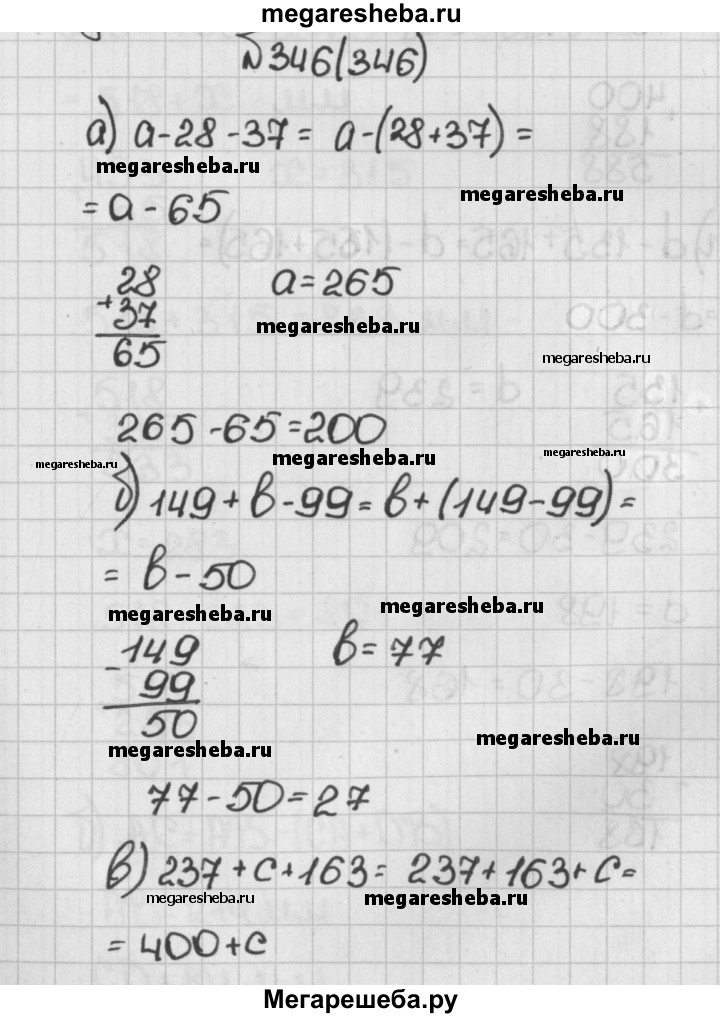 megaresheba.ru
№346(346)
а) a-28-37= a-(28+37)=
megaresheba.ru
megaresheba.ru
= a-65
28 a=265
+37
megaresheba.ru
65
megaresheba.ru
265-65=200
megaresheba.ru megaresheba.ru megaresheba.ru
б) 149+b-99=b+(149-99)=
= b-50
megaresheba.ru megaresheba.ru
-149 b=77
99
50
megaresheba.ru megaresheba.ru
77-50=27
в) 237+c+163= 237+163+c=
megaresheba.ru megaresheba.ru
= 400+c
Мегарешеба.ру